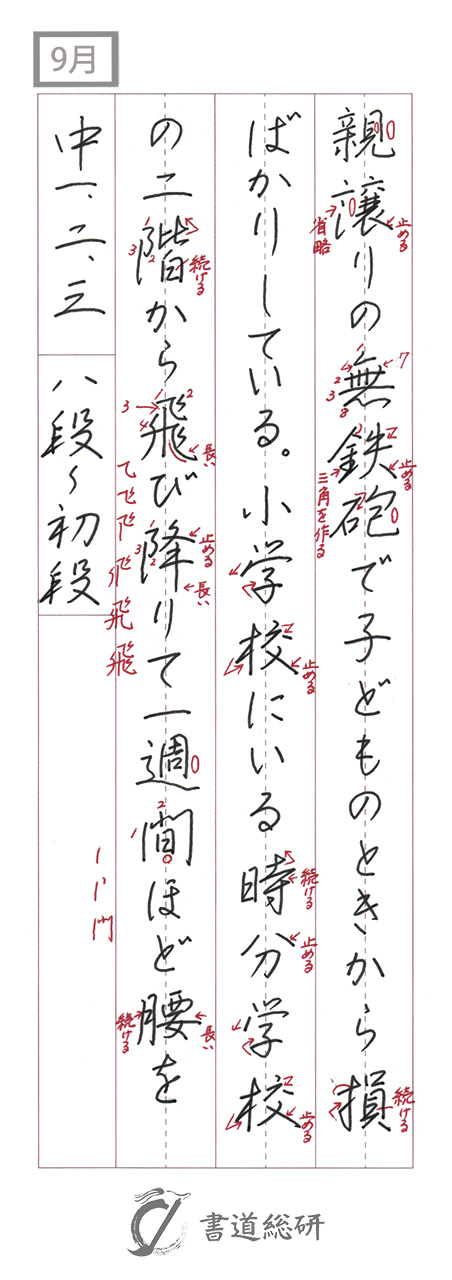 9月
親譲りの無鉄砲で子どものときから損
ばかりしている。小学校にいる時分学校
の二階から飛び降りて一週間ほど腰を
中一、二、三
八段〜初段
省略
止める
7
1
2
3
8
2
止める
三角を作る
続ける
止める
続ける
止める
止める
1
3
2
続ける
2
3
4
長い
飛
飛
1
3
2
止める
長い
2
1
門
長い
続ける
書道総研